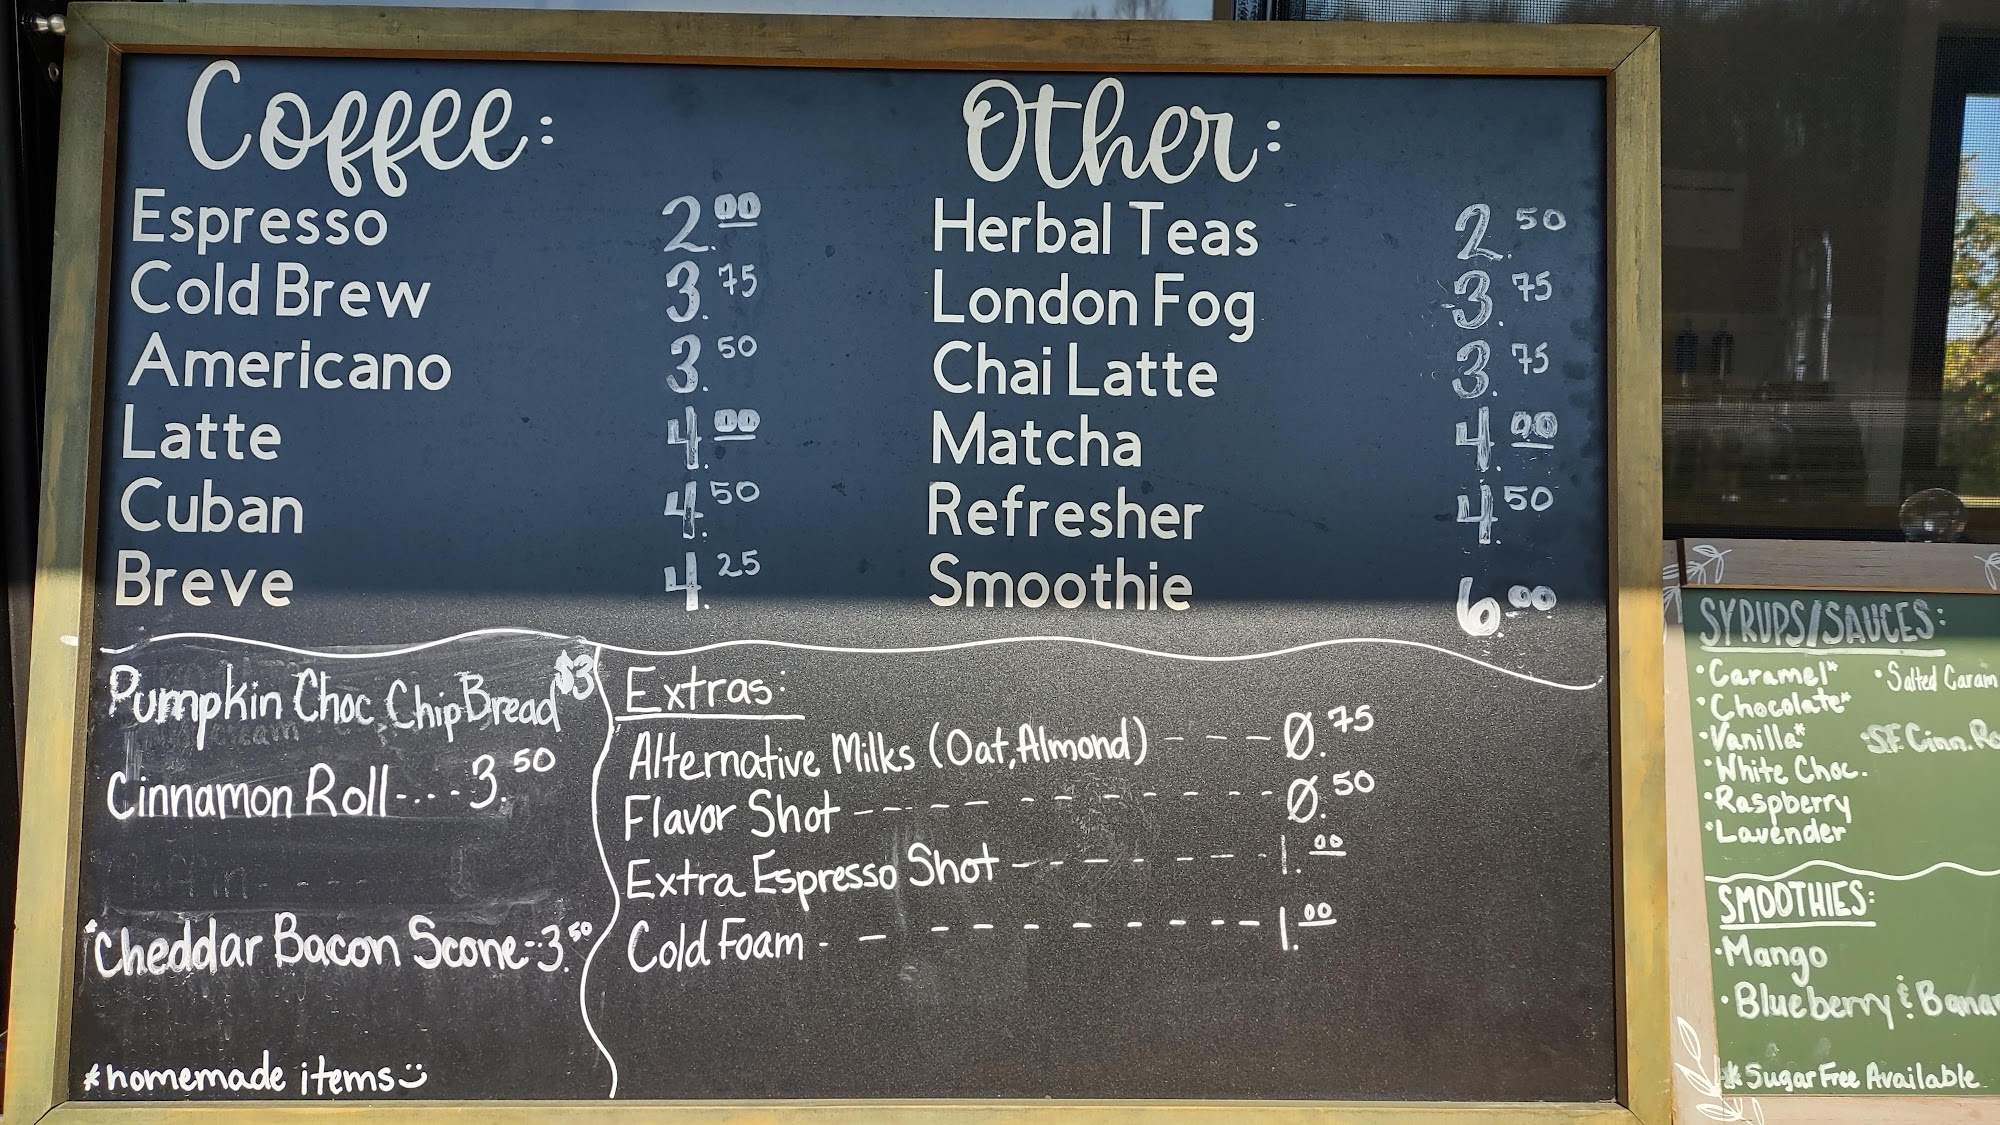 Coffee:
Espresso 2.00
Cold Brew 3.75
Americano 3.50
Latte 4.00
Cuban 4.50
Breve 4.25
Other:
Herbal Teas 2.50
London Fog 3.75
Chai Latte 3.75
Matcha 4.00
Refresher 4.50
Smoothie 6.00
Pumpkin Choc Chip Bread $3
Cinnamon Roll----3.50
*Cheddar Bacon Scone--3.50
*homemade items
Extras:
Alternative Milks (Oat, Almond) --- 0.75
Flavor Shot ---------- 0.50
Extra Espresso Shot ------- 1.00
Cold Foam --------- 1.00
SYRUPS/SAUCES:
•Caramel*
•Chocolate*
•Vanilla*
•White Choc.
•Raspberry
•Lavender
•Salted Caram
•S.F. Cinn. Ro
SMOOTHIES:
•Mango
•Blueberry & Bana
*Sugar Free Available